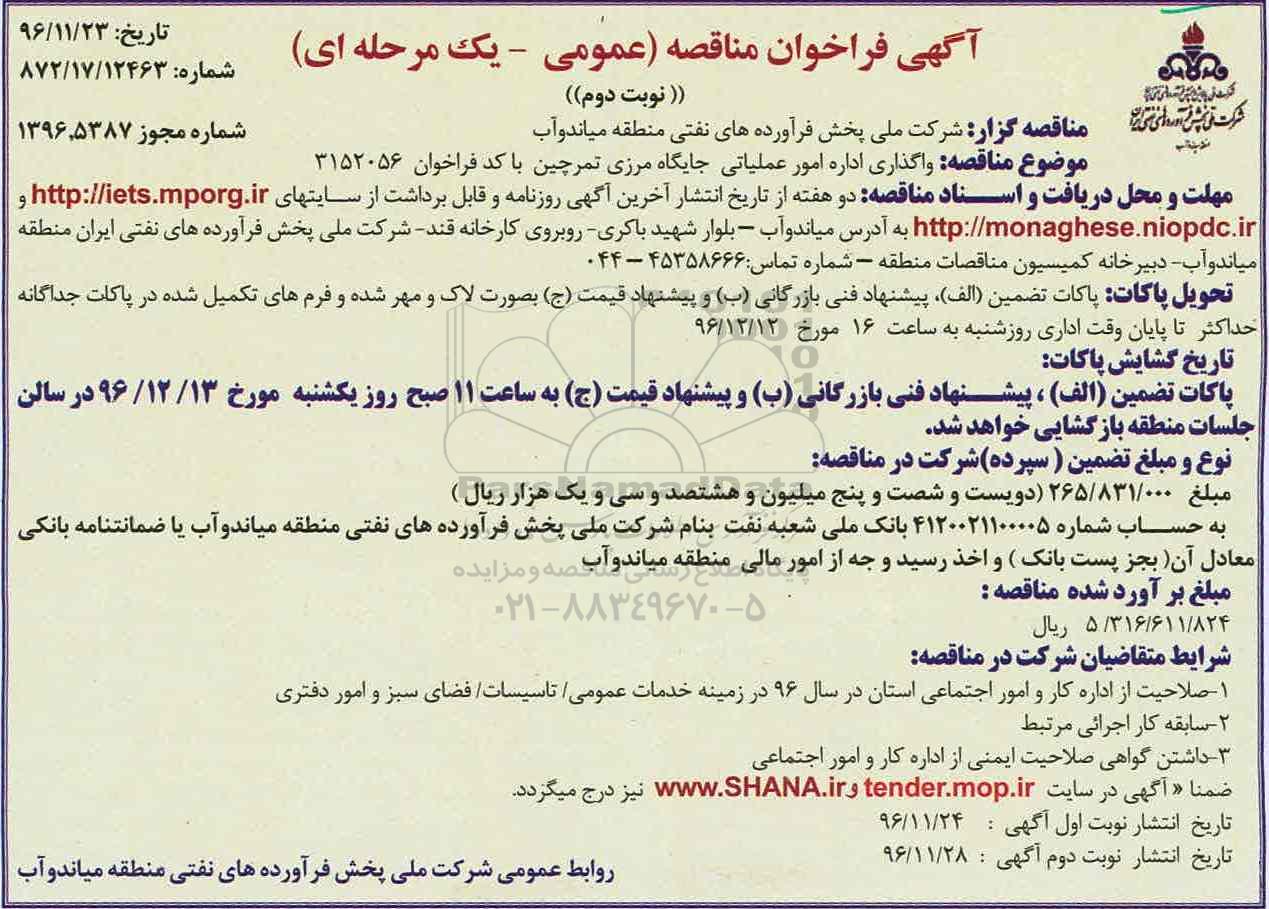 تاریخ: ۹۶/۱۱/۲۳
شماره: ۸۷۲/۱۷/۱۲۴۶۳
آگهی فراخوان مناقصه (عمومی - یک مرحله ای)
(( نوبت دوم))
شماره مجوز ۱۳۹۶,۵۳۸۷
مناقصه گزار: شرکت ملی پخش فرآورده های نفتی منطقه میاندوآب
موضوع مناقصه: واگذاری اداره امور عملیاتی جایگاه مرزی تمرچین با کد فراخوان ۳۱۵۲۰۵۶
مهلت و محل دریافت و اسناد مناقصه: دو هفته از تاریخ انتشار آخرین آگهی روزنامه و قابل برداشت از سایتهای http://iets.mporg.ir و
http://monaghese.niopdc.ir به آدرس میاندوآب – بلوار شهید باکری- روبروی کارخانه قند- شرکت ملی پخش فرآورده های نفتی ایران منطقه
میاندوآب- دبیرخانه کمیسیون مناقصات منطقه – شماره تماس:۴۵۳۵۸۶۶۶ – ۰۴۴
تحویل پاکات: پاکات تضمین (الف)، پیشنهاد فنی بازرگانی (ب) و پیشنهاد قیمت (ج) بصورت لاک و مهر شده و فرم های تکمیل شده در پاکات جداگانه
حداکثر تا پایان وقت اداری روزشنبه به ساعت ۱۶ مورخ ۹۶/۱۲/۱۲
تاریخ گشایش پاکات:
پاکات تضمین (الف) ، پیشنهاد فنی بازرگانی (ب) و پیشنهاد قیمت (ج) به ساعت ۱۱ صبح روز یکشنبه مورخ ۱۳ /۱۲ /۹۶ در سالن
جلسات منطقه بازگشایی خواهد شد.
نوع و مبلغ تضمین ( سپرده)شرکت در مناقصه:
مبلغ ۲۶۵/۸۳۱/۰۰۰ (دویست و شصت و پنج میلیون و هشتصد و سی و یک هزار ریال )
به حساب شماره ۴۱۲۰۰۲۱۱۰۰۰۰۵ بانک ملی شعبه نفت بنام شرکت ملی پخش فرآورده های نفتی منطقه میاندوآب یا ضمانتنامه بانکی
معادل آن( بجز پست بانک ) و اخذ رسید و جه از امور مالی منطقه میاندوآب
مبلغ بر آورد شده مناقصه :
۵ /۳۱۶/۶۱۱/۸۲۴ ریال
شرایط متقاضیان شرکت در مناقصه:
۱-صلاحیت از اداره کار و امور اجتماعی استان در سال ۹۶ در زمینه خدمات عمومی/ تاسیسات/ فضای سبز و امور دفتری
۲-سابقه کار اجرائی مرتبط
۳-داشتن گواهی صلاحیت ایمنی از اداره کار و امور اجتماعی
ضمنا « آگهی در سایت tender.mop.ir و www.SHANA.ir نیز درج میگردد.
تاریخ انتشار نوبت اول آگهی : ۹۶/۱۱/۲۴
تاریخ انتشار نوبت دوم آگهی : ۹۶/۱۱/۲۸
روابط عمومی شرکت ملی پخش فرآورده های نفتی منطقه میاندوآب
ParsNamadData
پایگاه اطلاع رسانی مناقصه و مزایده
۰۲۱-۸۸۳۴۹۶۷۰-۵